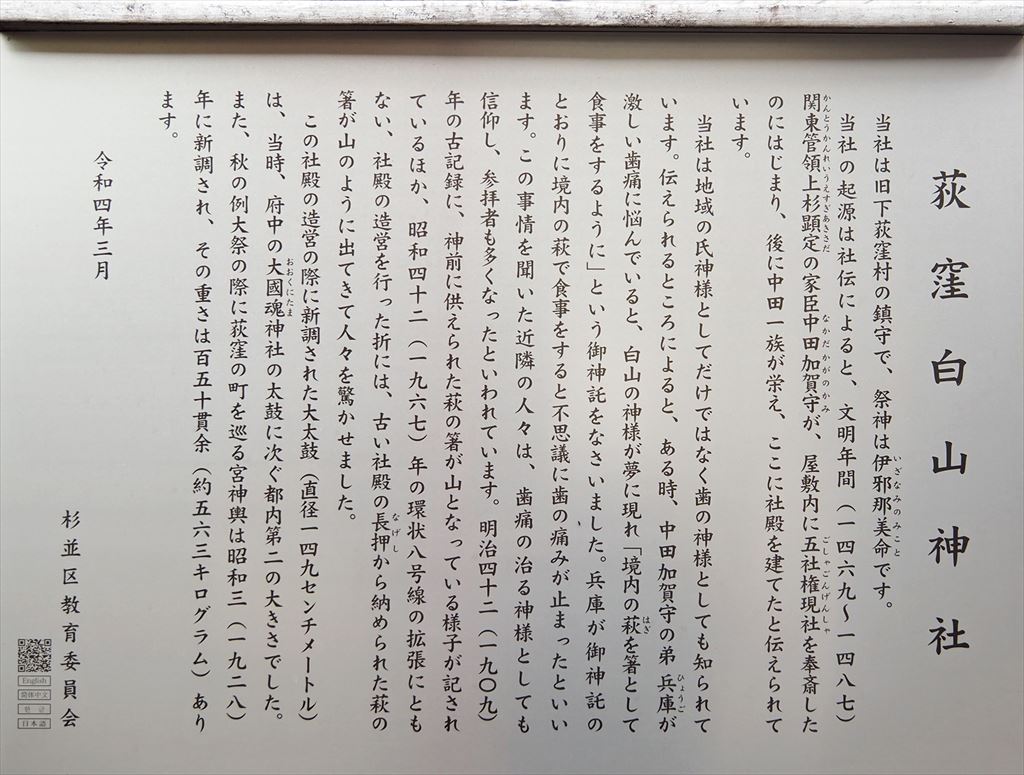 荻窪白山神社
当社は旧下荻窪村の鎮守で、祭神は伊邪那美命です。
いざなみのみこと
当社の起源は社伝によると、文明年間（一四六九～一四八七）
関東管領上杉顕定の家臣中田加賀守が、屋敷内に五社権現社を奉斎した
かんとうかんれいうえすぎあきさだ
なかだかがのかみ
ごしゃごんげんしゃ
のにはじまり、後に中田一族が栄え、ここに社殿を建てたと伝えられて
います。
当社は地域の氏神様としてだけではなく歯の神様としても知られて
います。伝えられるところによると、ある時、中田加賀守の弟兵庫が
ひょうご
激しい歯痛に悩んでいると、白山の神様が夢に現れ「境内の萩を箸として
はぎ
食事をするように」という御神託をなさいました。兵庫が御神託の
とおりに境内の萩で食事をすると不思議に歯の痛みが止まったといい
ます。この事情を聞いた近隣の人々は、歯痛の治る神様としても
信仰し、参拝者も多くなったといわれています。明治四十二（一九〇九）
年の古記録に、神前に供えられた萩の箸が山となっている様子が記され
ているほか、昭和四十二（一九六七）年の環状八号線の拡張にとも
ない、社殿の造営を行った折には、古い社殿の長押から納められた萩の
なげし
箸が山のように出てきて人々を驚かせました。
この社殿の造営の際に新調された大太鼓（直径一四九センチメートル）
は、当時、府中の大國魂神社の太鼓に次ぐ都内第二の大きさでした。
おおくにたま
また、秋の例大祭の際に荻窪の町を巡る宮神輿は昭和三（一九二八）
年に新調され、その重さは百五十貫余（約五六三キログラム）あり
ます。
令和四年三月
杉並区教育委員会
English
简体中文
한글
日本語